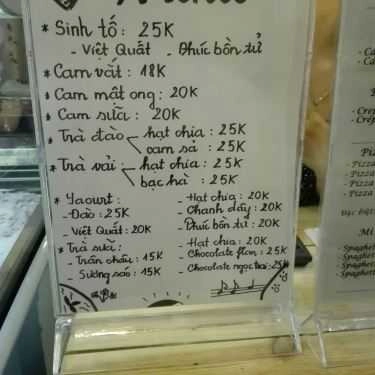 Menu
* Sinh tố: 25K
- Việt Quất - Phúc bồn tử
* Cam vắt: 18K
* Cam mật ong: 20K
* Cam sữa: 20K
* Trà đào hạt chia: 25K
cam sả: 25K
* Trà vải hạt chia: 25K
bạc hà: 25K
* Yaourt:
- Đào: 25K
- Việt Quất: 20K
- Hạt chia: 20K
- Chanh dây: 20K
- Phúc bồn tử: 20K
* Trà sữa:
- Trân châu: 15K
- Sương sáo: 15K
- Hạt chia: 20K
- Chocolate flan: 25K
- Chocolate ngọc trai: 25K
- Ca
- Ca
- Crep
- Crep
Pi
- Pizza
- Pizza
- Pizza
Mì
- Spaghe
- Spaghett
- Spaghett
- Spaghett